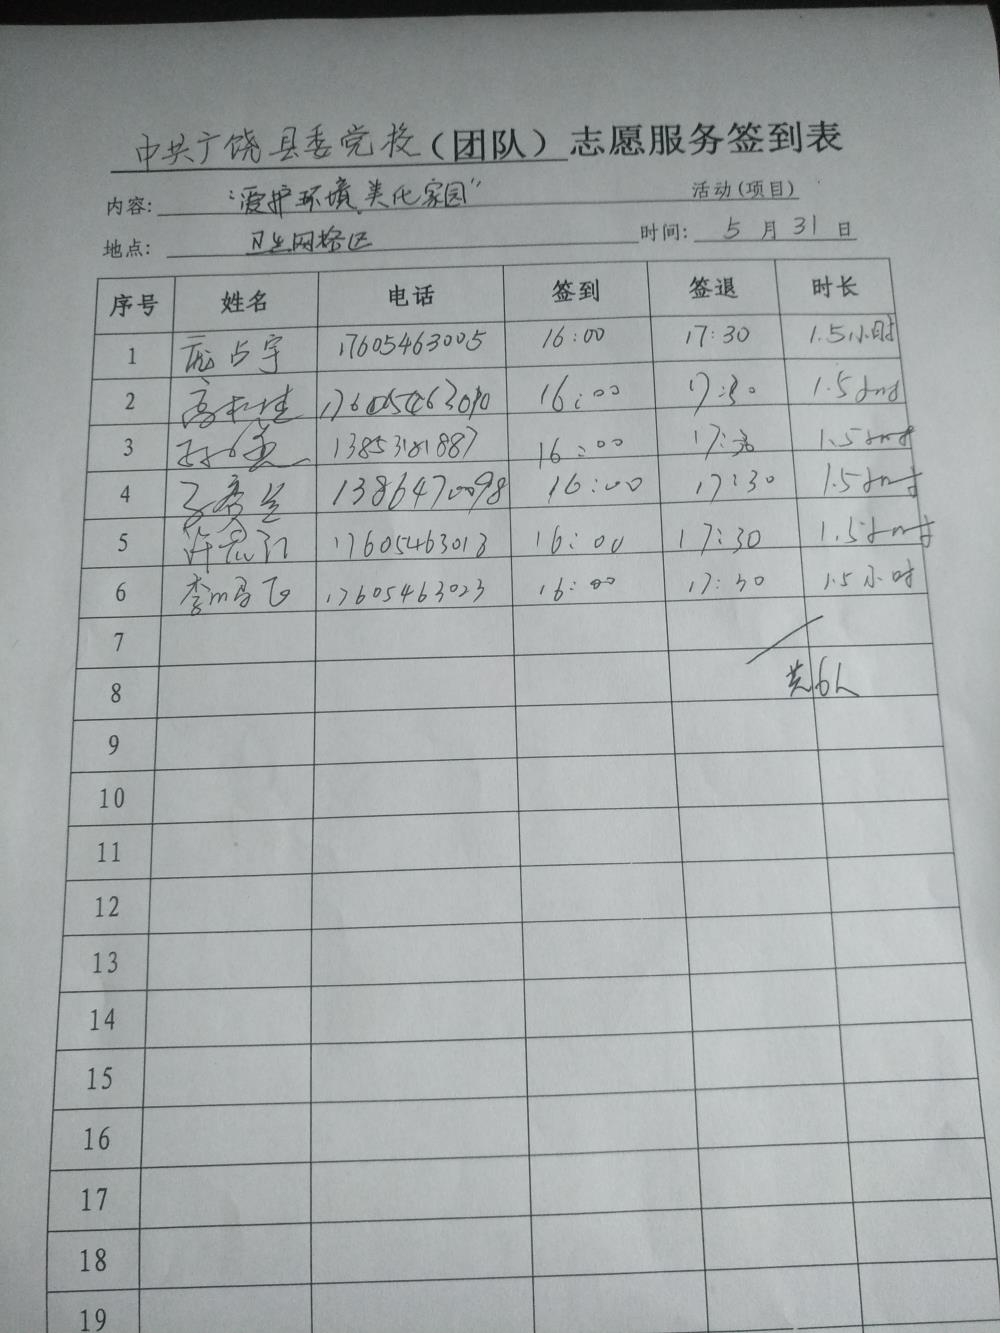 中共广饶县委党校（团队）志愿服务签到表
内容: "爱护环境 美化家园" 活动(项目)
地点: 卫生网格区 时间: 5 月 31 日
序号 姓名 电话 签到 签退 时长
1 庞占宇 17605463005 16:00 17:30 1.5小时
2 17605463010 16:00 17:30 1.5小时
3 13853181887 16:00 17:30 1.5小时
4 13864770098 16:00 17:30 1.5小时
5 17605463013 16:00 17:30 1.5小时
6 李鹏飞 17605463023 16:00 17:30 1.5小时
7
8 共6人
9
10
11
12
13
14
15
16
17
18
19